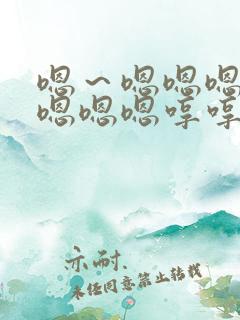 嗯～嗯嗯嗯
嗯嗯嗯哼哼
亦耐.
未经同意禁止转载